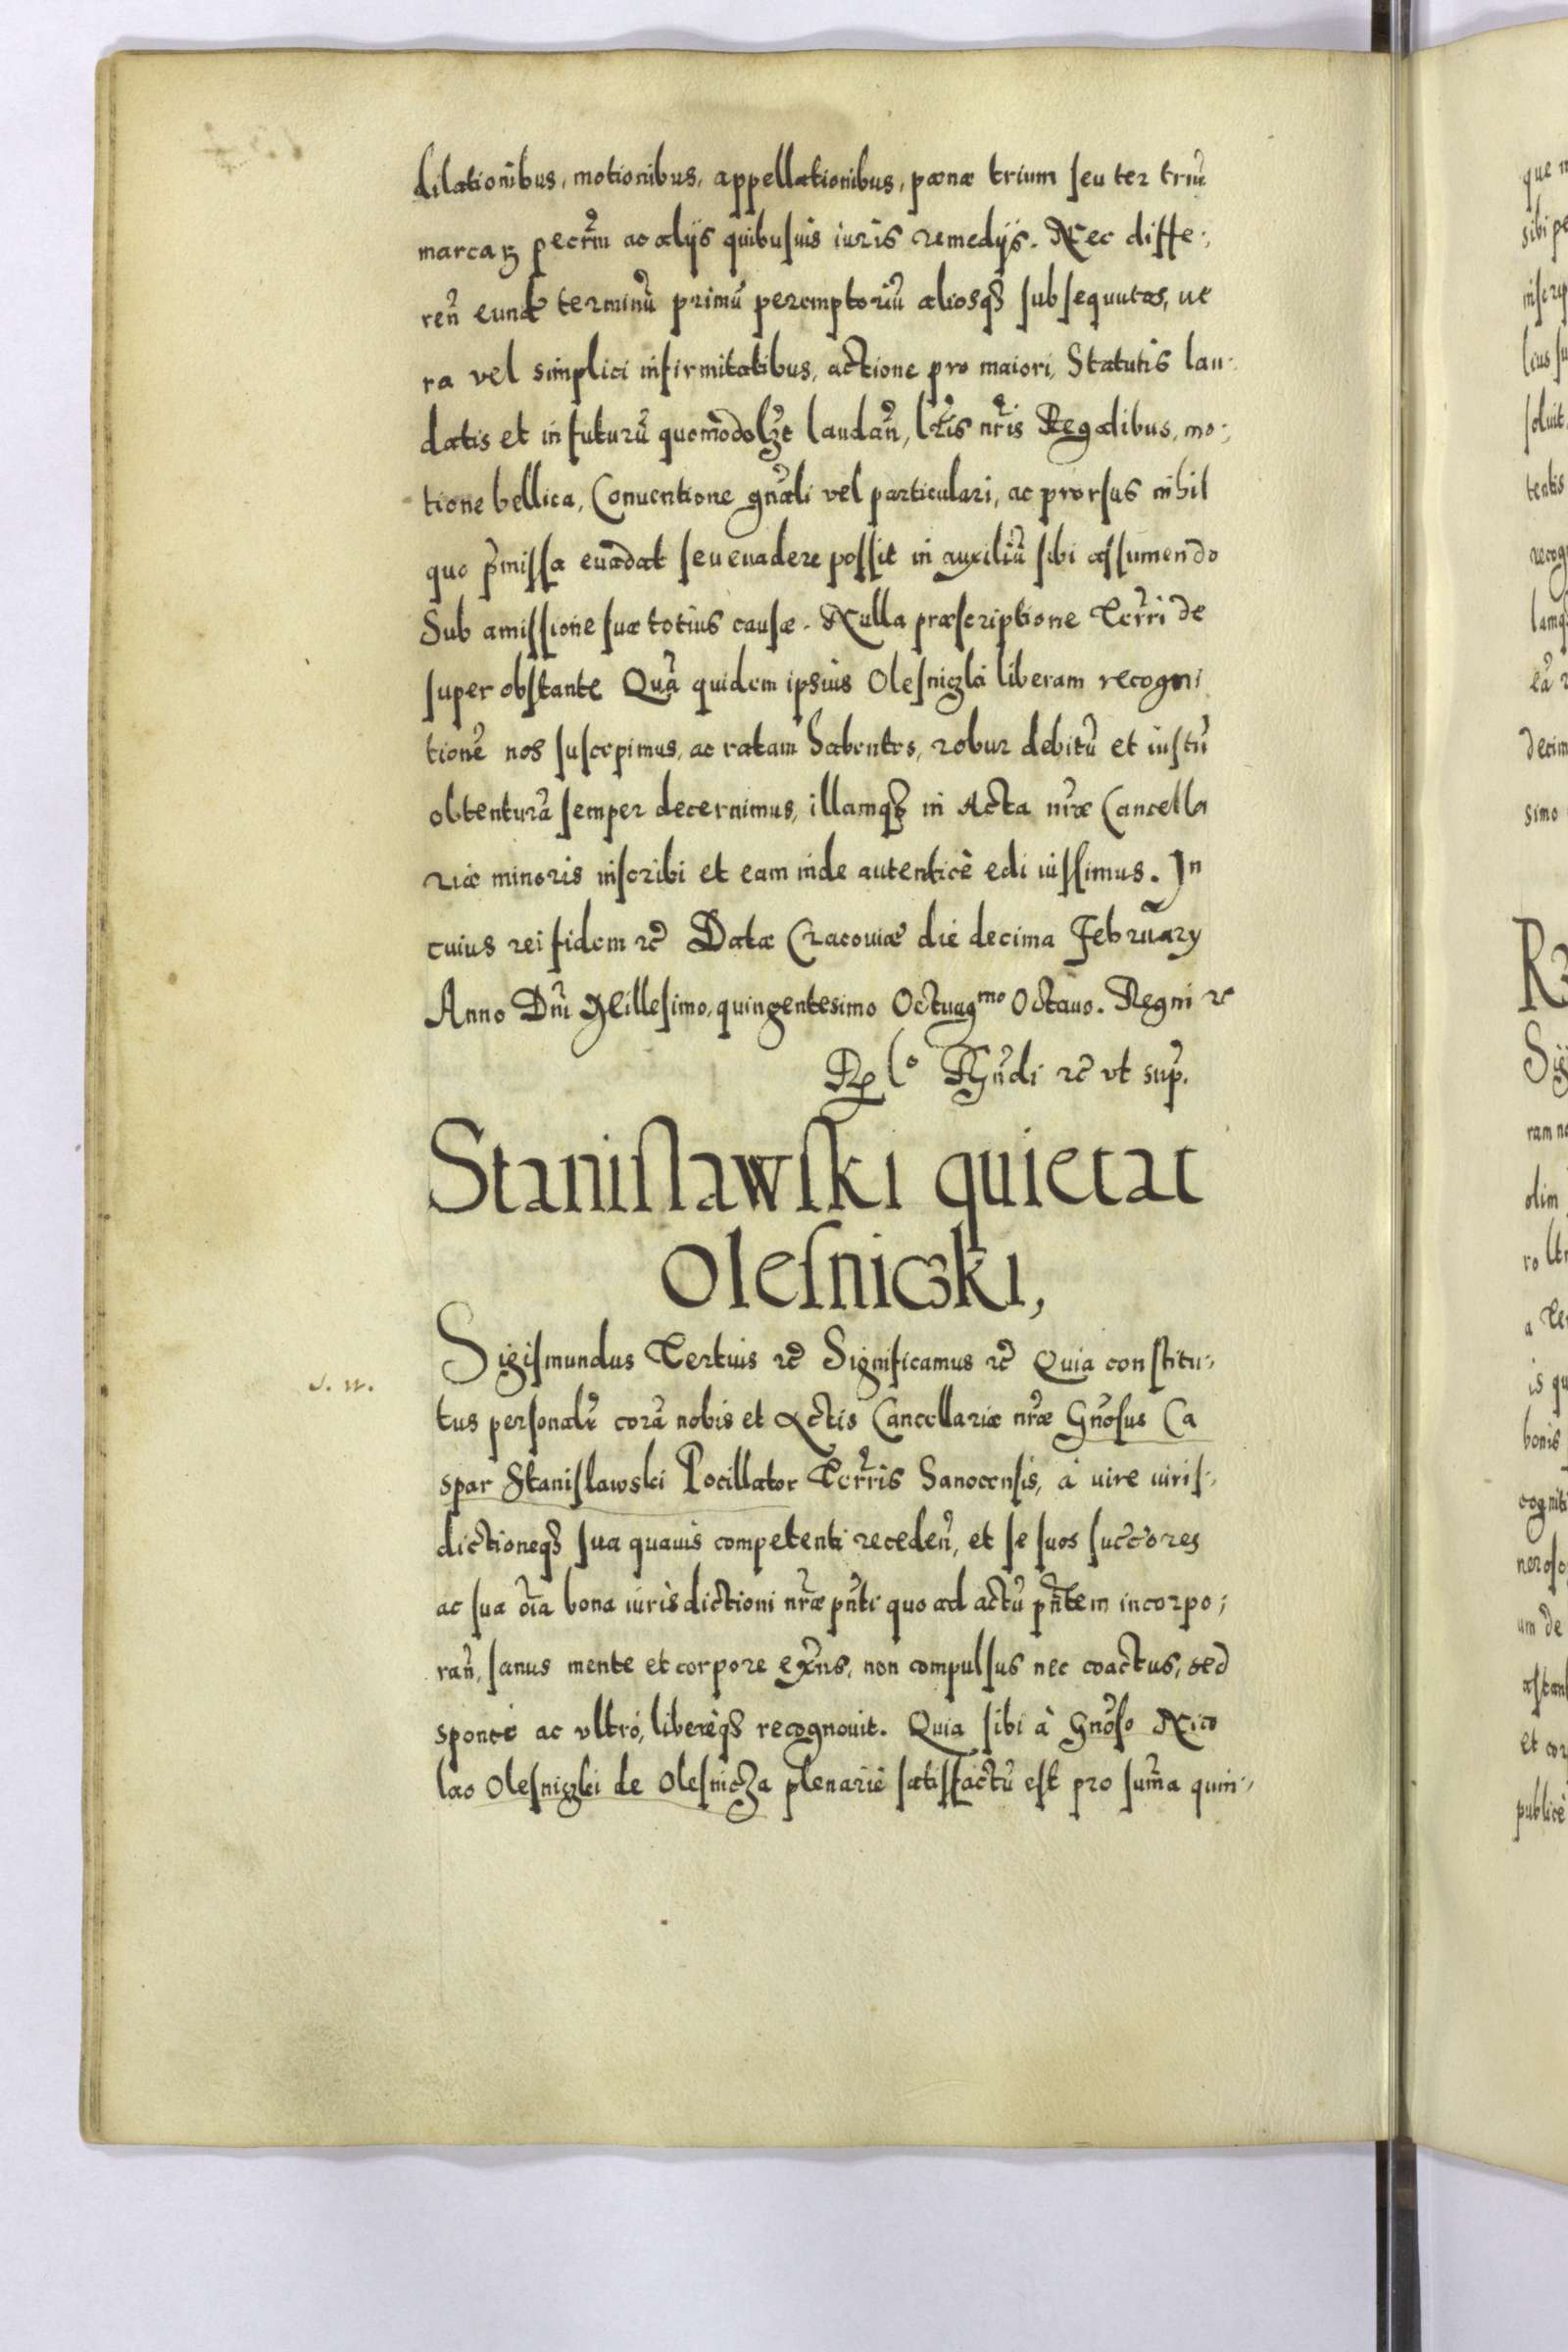 dilationibus, motionibus, appellationibus, pœnæ trium seu ter triũ
marcaꝝ pecr̃m ac alijs quibusuis iuris remedijs. Nec diffe-
reñ eund̃ terminũ primũ peremptoriũ aliosqꝫ subsequutos, ve
ra vel simplici infirmitatibus, actione pro maiori, Statutis lau-
datis et in futurũ quomodolꝫt laudañ, l̃ris nr̃is Regalibus, mo-
tione bellica, Conuentione gnãli vel particulari, ac prorsus nihil
quo p̃missa euadat seu euadere possit in auxiliũ sibi assumendo
Sub amissione suæ totius causæ. Nulla præscriptione Terr̃i de
super obstante Quã quidem ipsius Olesniczki liberam recogni
tionẽ nos suscepimus, ac ratam habentes, robur debitũ et iustũ
obtenturã semper decernimus, illamqꝫ in Acta nr̃æ Cancella
riæ minoris inscribi et eam inde autenticè edi iussimus. In
cuius rei fidem ꝛc̃ Datæ Cracouiæ die decima February
Anno Dñi Millesimo, quingentesimo Octuagᵐᵒ Octauo. Regni ꝛc
Rñdi ꝛc̃ vt sup̃.
Stanislawski quietat
Olesniczki,
Sigismundus Tertius ꝛc̃ Significamus ꝛc̃ Quia constitu-
S. W.
tus personalr̃ corã nobis et Actis Cancellariæ nr̃æ Gñosus Ca
spar Stanislawski Pocillator Terr̃is Sanocensis, à iure iuris-
dictioneqꝫ sua quauis competenti recedeñ, et se suos succ̃ores
ac sua oĩa bona iurisdictioni nr̃æ pñti quo ad actũ pñtem incorpo-
rañ, sanus mente et corpore exñs, non compulsus nec coactus, sed
sponte ac vltrò, liberèqꝫ recognouit. Quia sibi à Gñoso Nico
lao Olesniczki de Olesnicza plenariè satisfactũ est pro sum̃a quin-